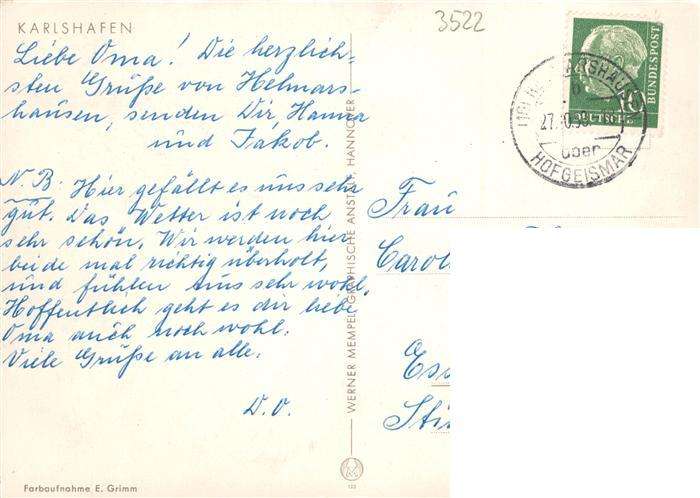 KARLSHAFEN
3522
Liebe Oma! Die herzlich-
sten Grüße von Helmars-
hausen, senden Dir, Hanna
und Jakob.
N.B. Hier gefällt es uns sehr
gut. Das Wetter ist noch
sehr schön. Wir werden hier
beide mal richtig überholt,
und fühlen uns sehr wohl.
Hoffentlich geht es dir liebe
Oma auch noch wohl.
Viele Grüße an alle.
D.O.
Farbaufnahme E. Grimm
WERNER MEMPEL GRAPHISCHE ANSTALT, HANNOVER
DEUTSCHE
BUNDESPOST
über
HOFGEISMAR
Frau